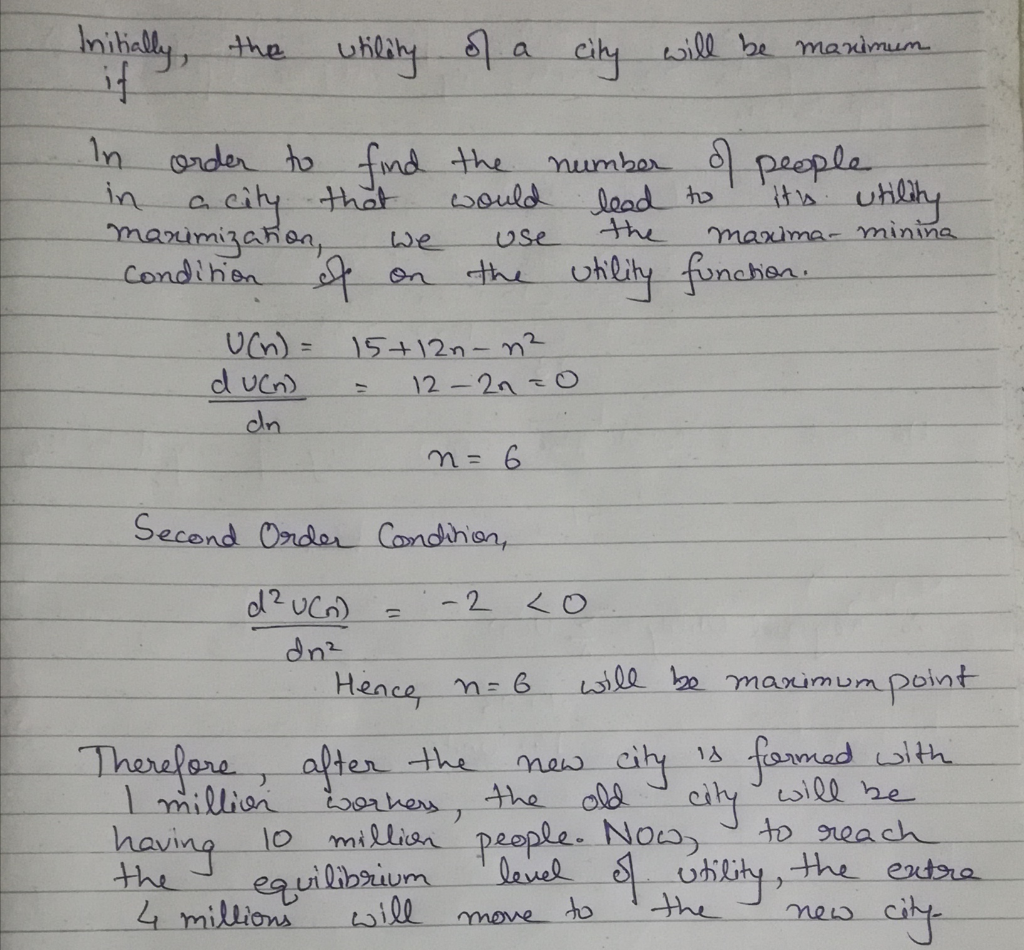 Initially, the utility of a city will be maximum
if
In order to find the number of people
in a city that would lead to it's utility
maximization, we use the maxima-minina
condition of on the utility function.
U(n) = 15+12n-n²
dU(n) = 12-2n=0
dn
n= 6
Second Order Condition,
d²U(n) = -2 <0
dn²
Hence, n=6 will be maximum point
Therefore, after the new city is formed with
1 million workers, the old city will be
having 10 million people. Now, to reach
the equilibrium level of utility, the extra
4 millions will move to the new city.